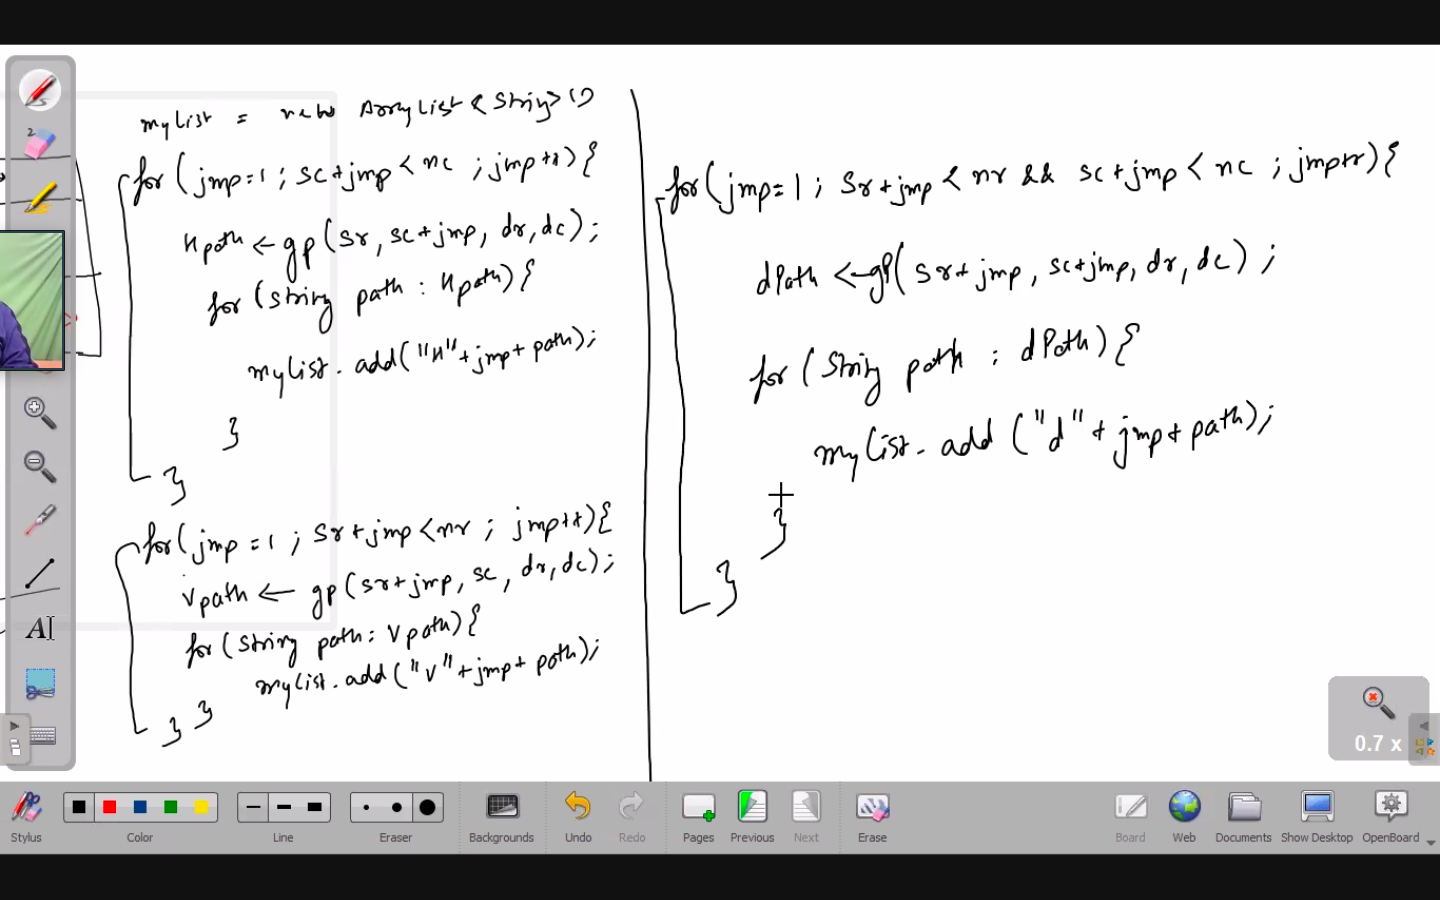 mylist = new ArrayList<String>()
for(jmp=1; sc+jmp<nc; jmp++){
hpath ← gp(sr, sc+jmp, dr, dc);
for(String path : hpath){
mylist.add("h"+jmp+path);
}
}
for(jmp=1; sr+jmp<nr; jmp++){
vpath ← gp(sr+jmp, sc, dr, dc);
for(String path: vpath){
mylist.add("v"+jmp+path);
} }
for(jmp=1; sr+jmp<nr && sc+jmp<nc; jmp++){
dPath ← gp(sr+jmp, sc+jmp, dr, dc);
for(String path : dPath){
mylist.add("d"+jmp+path);
}
}
2
A
0.7 x
Stylus
Color
Line
Eraser
Backgrounds
Undo
Redo
Pages
Previous
Next
Erase
Board
Web
Documents
Show Desktop
OpenBoard